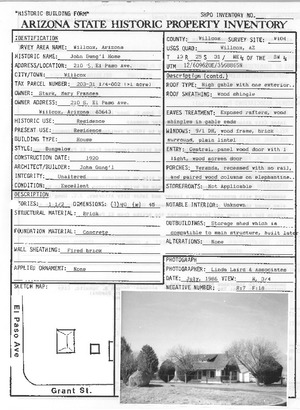 "HISTORIC BUILDING FORM"
SHPO INVENTORY NO.
ARIZONA STATE HISTORIC PROPERTY INVENTORY
IDENTIFICATION
SURVEY AREA NAME: Willcox, Arizona
HISTORIC NAME: John Gung'l Home
ADDRESS/LOCATION: 210 S. El Paso Ave.
CITY/TOWN: Willcox
TAX PARCEL NUMBER:
OWNER: Stark, Mary Frances
OWNER ADDRESS: 210 S. El Paso Ave.
Willcox, Arizona 85643
HISTORIC USE: Residence
PRESENT USE: Residence
BUILDING TYPE: House
STYLE: Bungalow
CONSTRUCTION DATE: 1920
ARCHITECT/BUILDER: John Gung'l
INTEGRITY: Unaltered
CONDITION: Excellent
DESCRIPTION
STORIES: 1 1/2 DIMENSIONS: (l) 40 (w) 48
STRUCTURAL MATERIAL: Brick
FOUNDATION MATERIAL: Concrete
WALL SHEATHING: Fired brick
APPLIED ORNAMENT: None
SKETCH MAP:
El Paso Ave
Grant St.
COUNTY: Willcox SURVEY SITE:
USGS QUAD: Willcox, AZ
UTM
Description (contd.)
ROOF TYPE: High gable with one exterior.
ROOF SHEATHING: Wood shingle
EAVES TREATMENT: Exposed rafters, wood
shingles in gable ends
WINDOWS: 9/1 DH, wood frame, brick
surround, plain lintel
ENTRY: Central, panel wood door with 1
light, wood screen door
PORCHES: Veranda, recessed with no rail,
and paired wood columns on elephantine.
STOREFRONTS: Not Applicable
NOTABLE INTERIOR: Unknown
OUTBUILDINGS: Storage shed which is
compatible to main structure, built later
ALTERATIONS: None
PHOTOGRAPH
PHOTOGRAPHER: Linda Laird & Associates
DATE: July, 1986 VIEW:
NEGATIVE NUMBER: